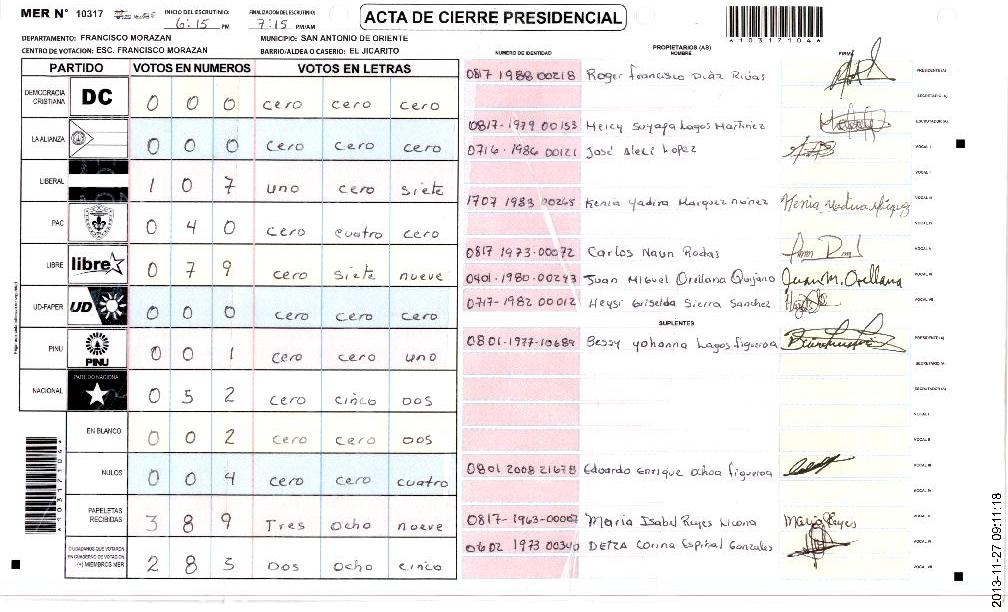 MER N° 10317
INICIO DEL ESCRUTINIO: 6:15 PM
FINALIZACION DEL ESCRUTINIO: 7:15 PM/AM
ACTA DE CIERRE PRESIDENCIAL
*1031710 4*
DEPARTAMENTO: FRANCISCO MORAZAN
MUNICIPIO: SAN ANTONIO DE ORIENTE
CENTRO DE VOTACION: ESC. FRANCISCO MORAZAN
BARRIO/ALDEA O CASERIO: EL JICARITO
PARTIDO VOTOS EN NUMEROS VOTOS EN LETRAS
DEMOCRACIA CRISTIANA DC 0 0 0 cero cero cero
LA ALIANZA 0 0 0 cero cero cero
LIBERAL 1 0 7 uno cero siete
PAC 0 4 0 cero cuatro cero
LIBRE libre 0 7 9 cero siete nueve
UD-FAPER UD 0 0 0 cero cero cero
PINU PINU 0 0 1 cero cero uno
NACIONAL PARTIDO NACIONAL 0 5 2 cero cinco dos
EN BLANCO 0 0 2 cero cero dos
NULOS 0 0 4 cero cero cuatro
PAPELETAS RECIBIDAS 3 8 9 Tres ocho nueve
CIUDADANOS QUE VOTARON EN CUADERNO DE VOTACION (+) MIEMBROS MER 2 8 5 Dos ocho cinco
NUMERO DE IDENTIDAD PROPIETARIOS (AS) NOMBRE FIRMA
0817 1988 00218 Roger Francisco Diaz Rivas PRESIDENTE(A)
SECRETARIO(A)
0817-1979 00153 Mercy Suyapa Lagos Martinez ESCRUTADOR(A)
0716-1986 00121 José Alexi Lopez VOCAL I
VOCAL II
1707 1983 00265 Kenia Yadira Marquez nuñez VOCAL III
VOCAL IV
0817 1973-00072 Carlos Naun Rodas VOCAL V
0401-1980-00243 Juan Miguel Orellana Quijano Juan M. Orellana VOCAL VI
0717-1982 00012 Heysi Griselda Sierra Sanchez VOCAL VII
SUPLENTES
0801-1977-10689 Bessy yohanna Lagos figueroa PRESIDENTE(A)
SECRETARIO(A)
ESCRUTADOR(A)
VOCAL I
VOCAL II
0801 2008 21678 Edoardo Enrique Ochoa figueroa VOCAL III
VOCAL IV
0817-1963-00007 Maria Isabel Reyes Licona Maria Reyes VOCAL V
0602 1973 00340 Corina Espinal Gonzales VOCAL VI
VOCAL VII
2013-11-27 09:11:18